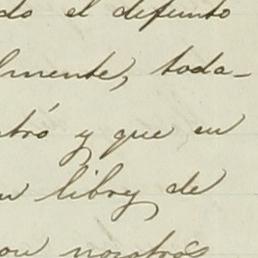 do el difunto
lmente, toda-
tró y que en
n libre, de
on nosotros